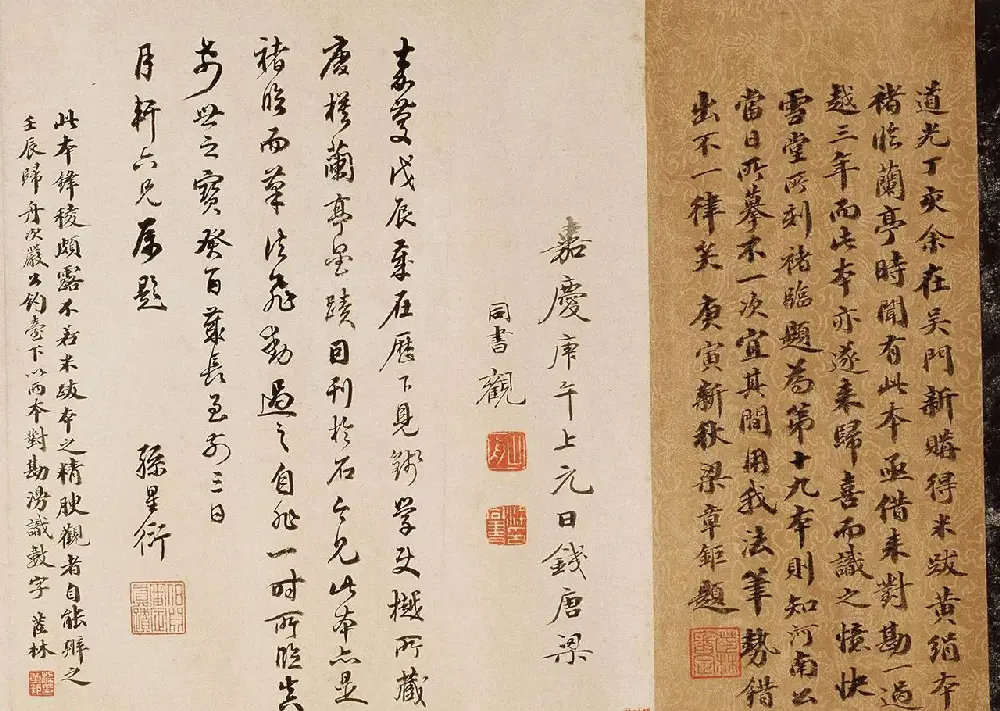 道光丁亥余在吳門新購得米跋黃絹本
褚臨蘭亭時聞有此本亟借来對勘一過
越三年而此本亦遂来歸喜而識之憶快
雪堂所刻褚臨題為第十九本則知河南公
當日所摹不一次宜其間用我法筆勢錯
出不一律矣 庚寅新秋梁章鉅題
嘉慶庚午上元日錢唐梁
同書觀
山舟
嘉慶戊辰歲在歷下見錢學使樾所藏
唐橅蘭亭墨蹟因刊於石今見此本亦是
褚臨而筆法飛動過之自非一時所臨真
希世之寶癸酉歲長至前三日
月軒六兄屬題 孫星衍
此本鋒稜頗露不若米跋本之精腴觀者自能辨之
壬辰歸舟次嚴公釣臺下以兩本對勘漫識數字 茝林